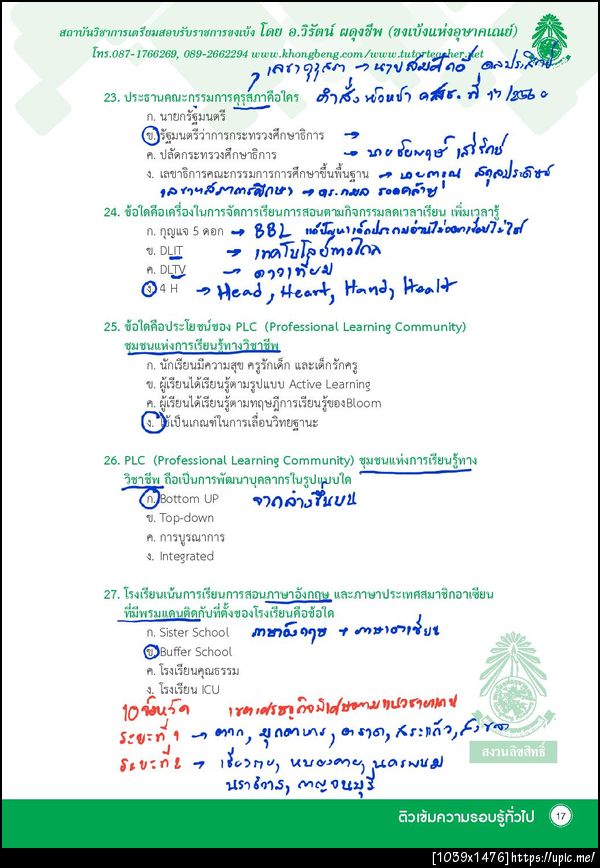 สถาบันวิชาการเตรียมสอบรับราชการขงเบ้ง โดย อ.วิรัตน์ ผดุงชีพ (ขงเบ้งแห่งอุษาคเณย์)
โทร.087-1766269, 089-2662294 www.khongbeng.com/www.tutorteacher.net
เลขาคุรุสภา → นายสมศักดิ์ ดลประสิทธิ์
23. ประธานคณะกรรมการคุรุสภาคือใคร คำสั่งหัวหน้า คสช. ที่ 17/2560
ก. นายกรัฐมนตรี
ข. รัฐมนตรีว่าการกระทรวงศึกษาธิการ →
ค. ปลัดกระทรวงศึกษาธิการ → นายชัยพฤกษ์ เสรีรักษ์
ง. เลขาธิการคณะกรรมการการศึกษาขึ้นพื้นฐาน → นายการุณ สกุลประดิษฐ์
(เลขาฯสภาการศึกษา) → ดร.กมล รอดคล้าย
24. ข้อใดคือเครื่องในการจัดการเรียนการสอนตามกิจกรรมลดเวลาเรียน เพิ่มเวลารู้
ก. กุญแจ 5 ดอก → BBL แก้ปัญหาเด็กประถมอ่านไม่ออกเขียนไม่ได้
ข. DLIT → เทคโนโลยีทางไกล
ค. DLTV → ดาวเทียม
ง. 4 H → Head, Heart, Hand, Healt
25. ข้อใดคือประโยชน์ของ PLC (Professional Learning Community)
ชุมชนแห่งการเรียนรู้ทางวิชาชีพ
ก. นักเรียนมีความสุข ครูรักเด็ก และเด็กรักครู
ข. ผู้เรียนได้เรียนรู้ตามรูปแบบ Active Learning
ค. ผู้เรียนได้เรียนรู้ตามทฤษฎีการเรียนรู้ของBloom
ง. ใช้เป็นเกณฑ์ในการเลื่อนวิทยฐานะ
26. PLC (Professional Learning Community) ชุมชนแห่งการเรียนรู้ทาง
วิชาชีพ ถือเป็นการพัฒนาบุคลากรในรูปแบบใด
ก. Bottom UP จากล่างขึ้นบน
ข. Top-down
ค. การบูรณาการ
ง. Integrated
27. โรงเรียนเน้นการเรียนการสอนภาษาอังกฤษ และภาษาประเทศสมาชิกอาเซียน
ที่มีพรมแดนติดกับที่ตั้งของโรงเรียนคือข้อใด
ก. Sister School ภาษาอังกฤษ + ภาษาอาเซียน
ข. Buffer School
ค. โรงเรียนคุณธรรม
ง. โรงเรียน ICU
10 จังหวัด เขตเศรษฐกิจพิเศษตามแนวชายแดน
ระยะที่ 1 → ตาก, มุกดาหาร, ตราด, สระแก้ว, สงขลา
ระยะที่ 2 → เชียงราย, หนองคาย, นครพนม
นราธิวาส, กาญจนบุรี
สงวนลิขสิทธิ์
ติวเข้มความรอบรู้ทั่วไป 17
[1039x1476]https://upic.me/